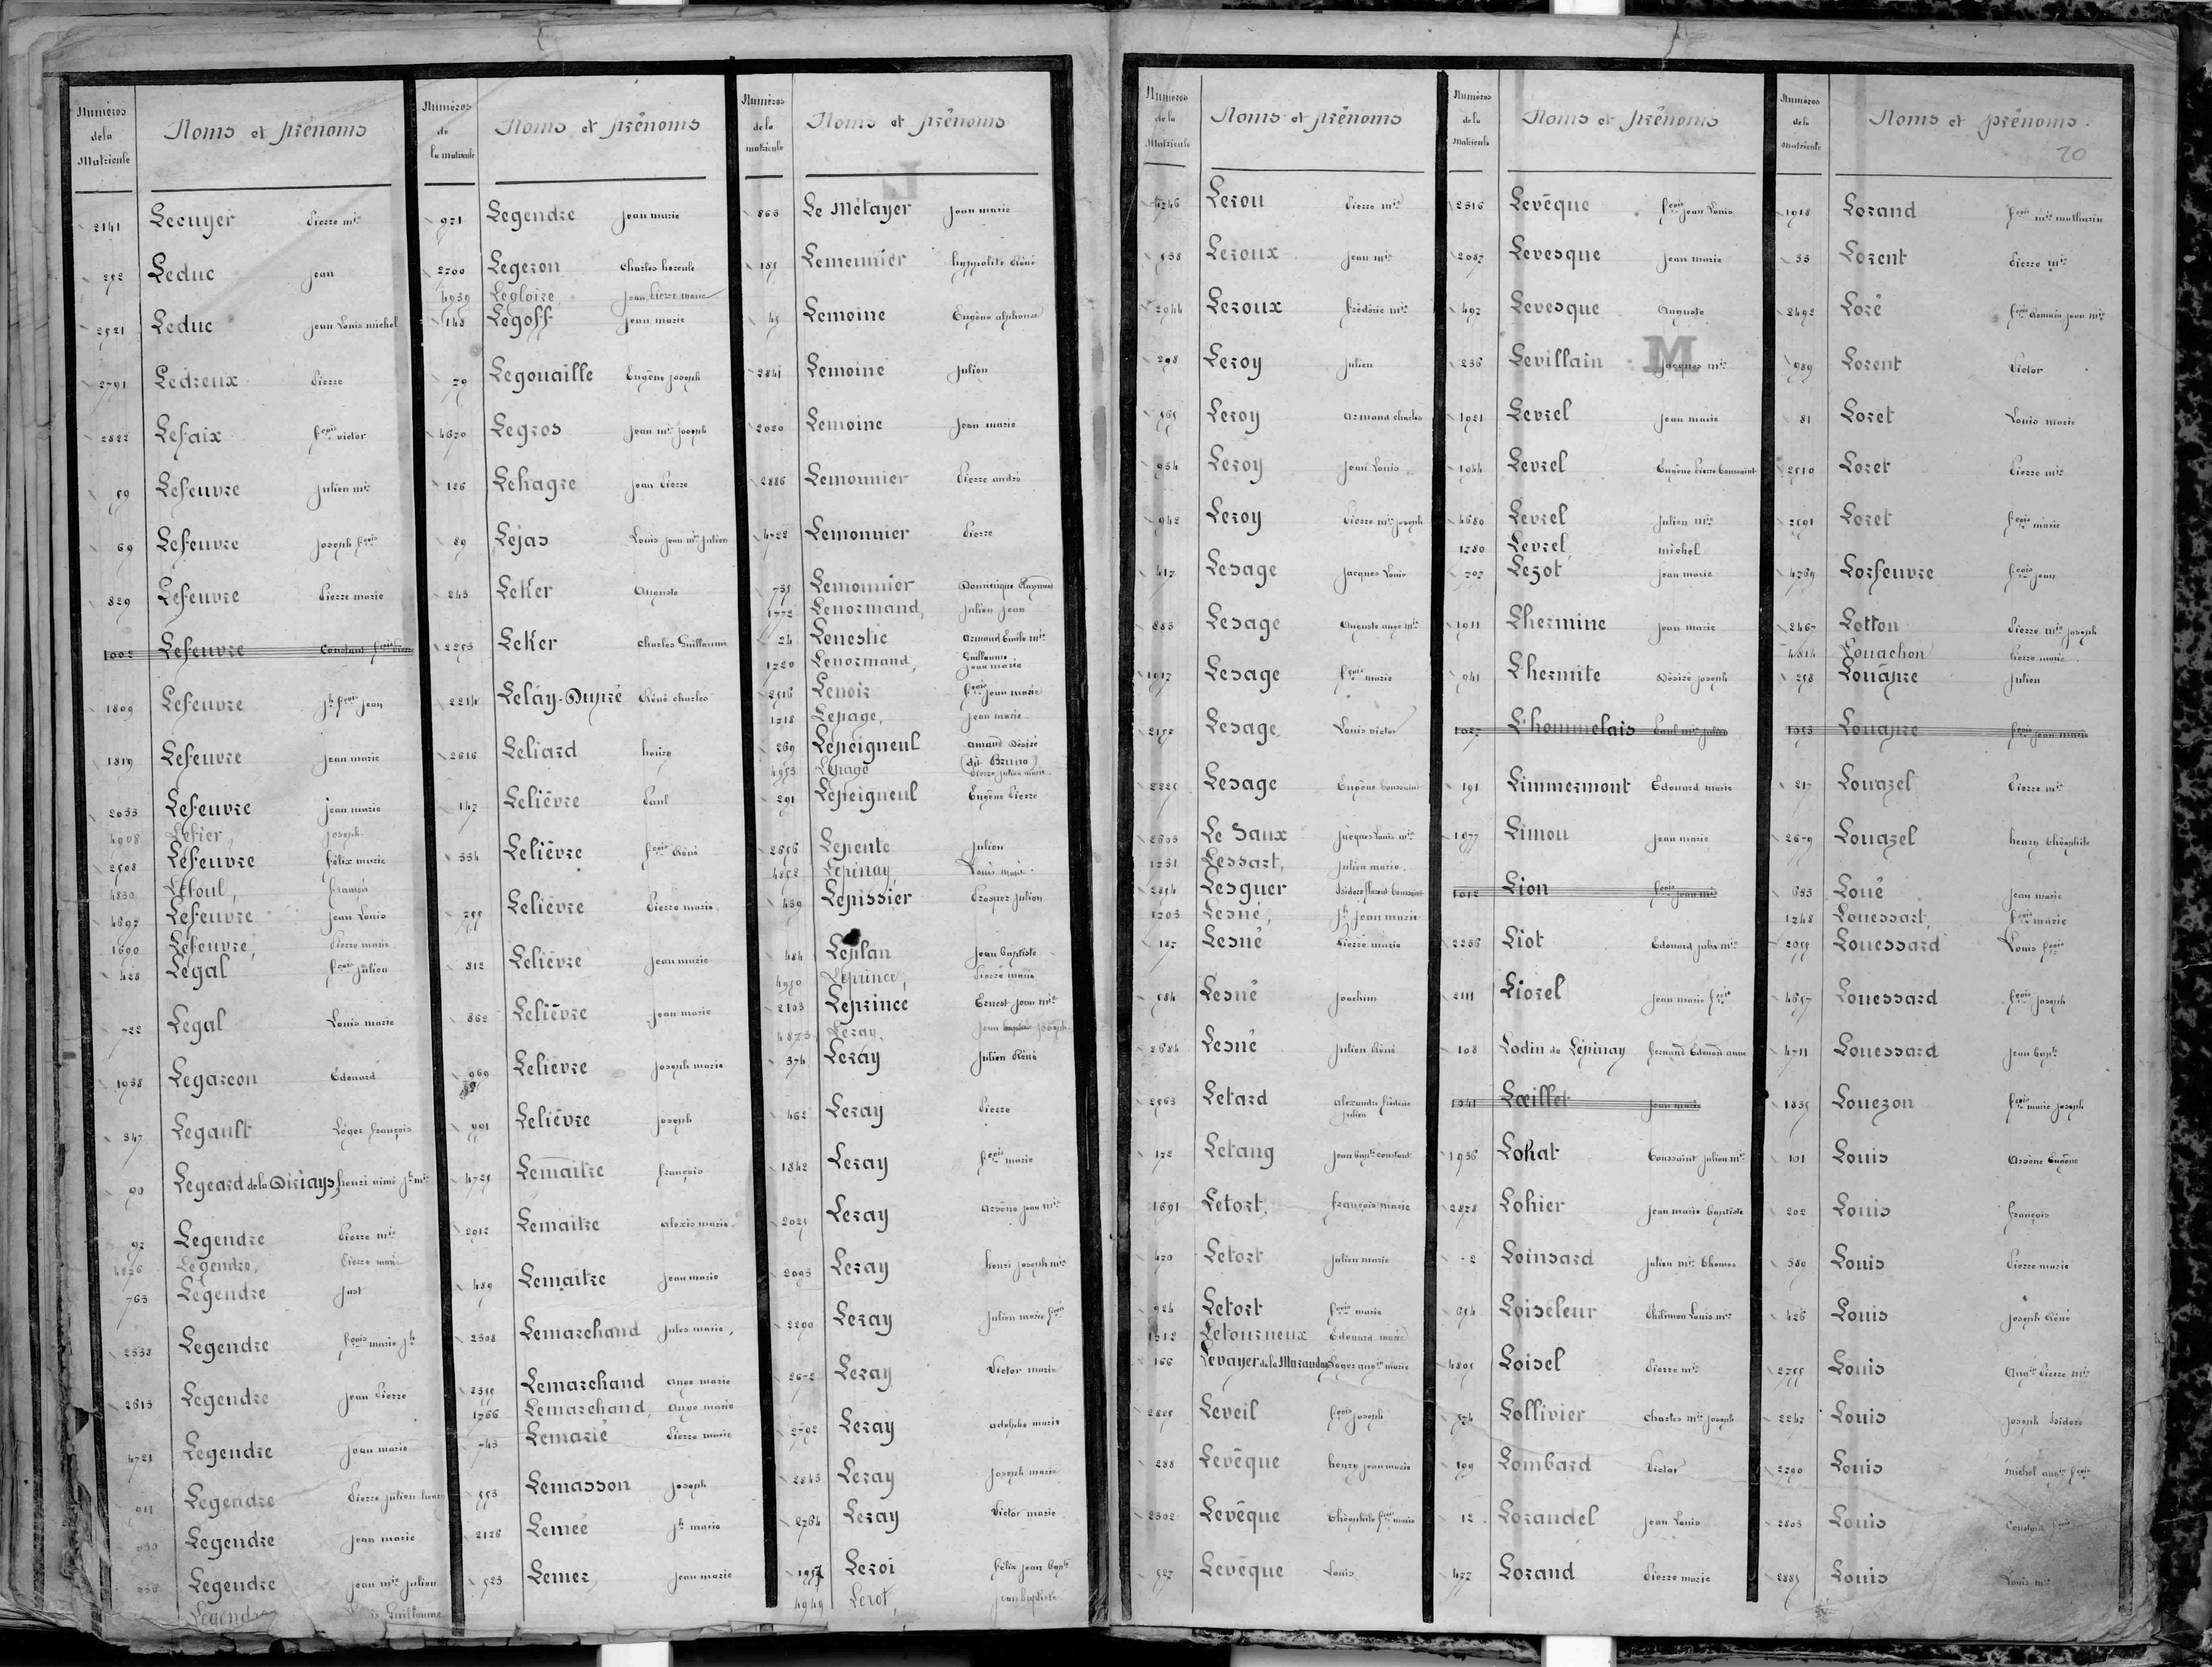 Numéros de la Matricule
Noms et prénoms
2141 Lecuyer Pierre mie
252 Leduc Jean
2521 Leduc Jean Louis michel
2791 Ledreux Pierre
2822 Lefaix fçois victor
59 Lefeuvre Julien mie
69 Lefeuvre Joseph fçois
829 Lefeuvre Pierre marie
1002 Lefeuvre Constant fçois Pierre
1809 Lefeuvre Jh fçois Jean
1819 Lefeuvre Jean marie
2033 Lefeuvre Jean marie
4908 Lefier Joseph
2508 Lefeuvre félix marie
4830 Lefoul, françois
4697 Lefeuvre Jean Louis
1600 Lefeuvre, Pierre marie
428 Legal fçois Julien
722 Legal Louis marie
1938 Legarcon Edouard
347 Legault Léger françois
90 Legeard de la Diriays, henri aimé Jh mie
97 Legendre Pierre mie
4826 Legendre, Pierre marie
763 Legendre Just
2338 Legendre fçois marie Jh
2613 Legendre Jean Pierre
4721 Legendre Jean marie
Legendre Pierre Julien henry
Legendre Jean marie
Legendre Jean mie Julien
Legendre Guillaume
Numéros de la matricule
Noms et prénoms
921 Legendre Jean marie
2700 Legeron Charles hercule
4939 Legloire, Jean Pierre marie
148 Legoff Jean marie
79 Legouaille Eugène Joseph
4670 Legros Jean mie Joseph
126 Lehagre Jean Pierre
89 Lejas Louis Jean mie Julien
243 LeKer Auguste
2253 LeKer Charles Guillaume
2214 Leláy-Dupré Réné charles
2616 Leliard henry
147 Lelièvre Paul
334 Lelièvre fçois Réné
755 Lelièvre Pierre marie
812 Lelièvre Jean marie
862 Lelièvre Jean marie
969 Lelièvre Joseph marie
991 Lelièvre Joseph
4725 Lemaitre françois
2012 Lemaitre alexis marie
489 Lemaitre Jean marie
2308 Lemarchand Jules marie,
2355 Lemarchand Ange marie
1766 Lemarchand, Ange marie
743 Lemarié Pierre marie
553 Lemasson Joseph
2126 Lemée Jh marie
523 Lemer Jean marie
Numéros de la matricule
Noms et prénoms
863 Le Métayer Jean marie
185 Lemeunier hyppolite Réné
45 Lemoine Eugène alphonse
2841 Lemoine Julien
2020 Lemoine Jean marie
2886 Lemonnier Pierre andré
4722 Lemonnier Pierre
735 Lemonnier Dominique Raymond
1772 Lenormand, Julien Jean
24 Lenestic armand Emile mie
1720 Lenormand, Guillaume Jean marie
2516 Lenoir fçois Jean marie
1218 Lepage, Jean marie
269 Lepeigneul amand Désiré (dit Bruno)
4953 Lepage Pierre Julien marie
291 Lepeigneul Eugène Pierre
2656 Lepente Julien
4852 Lepinay, Louis marie
439 Lepissier Prosper Julien
484 Leplan Jean baptiste
4950 Leprince, Pierre marie
2103 Leprince Ernest Jean mie
4873 Leray Jean baptiste Joseph
374 Leray Julien Réné
462 Leray Pierre
1842 Leray fçois marie
2025 Leray Arsène Jean mie
2093 Leray henri Joseph mie
2200 Leray Julien marie fçois
2672 Leray Victor marie
2792 Leray adolphe marie
2843 Leray Joseph marie
2764 Leray Victor marie
1957 Leroi félix Jean bapte
4949 Lerot, Jean baptiste
Numéros de la Matricule
Noms et prénoms
1246 Lerou Pierre mie
538 Leroux Jean mie
2044 Leroux frédéric mie
298 Leroy Julien
565 Leroy armand charles
954 Leroy Jean Louis
942 Leroy Pierre mie Joseph
417 Lesage Jacques Louis
883 Lesage Auguste ange mie
1917 Lesage fçois marie
2152 Lesage Louis victor
2225 Lesage Eugène Toussaint
2603 Le Saux Jacques Louis mie
1231 Lessart, Julien marie
2854 Lesguer Isidore florent Toussaint
1203 Lesné, Jh Jean marie
187 Lesné Pierre marie
584 Lesné Joachim
2684 Lesné Julien Réné
2563 Letard alexandre frédéric Julien
172 Letang Jean bapte constant
1691 Letort, françois marie
470 Letort Julien marie
924 Letort fçois marie
1312 Letourneux Edouard marie
166 Levayer de la Marandais Roger auguste marie
2825 Leveil fçois Joseph
288 Levêque henry Jean marie
2302 Levêque Théophile fçois marie
527 Levêque Louis
Numéros de la Matricule
Noms et prénoms
2316 Levêque fçois Jean Louis
2087 Levesque Jean marie
497 Levesque Auguste
236 Levillain Jacques mie
M
1921 Levrel Jean marie
1944 Levrel Eugène Pierre Toussaint
4680 Levrel Julien mie
1280 Levrel, michel
707 Lezot Jean marie
1911 Lhermine Jean marie
941 L'hermite Désiré Joseph
1027 L'hommelais Paul mie Julien
191 Limmermont Edouard marie
1977 Limou Jean marie
1012 Lion fçois Jean mie
2236 Liot Edouard Jules mie
2111 Liorel Jean marie fçois
108 Lodin de Lépinay fernand Edouard anne
1041 Lœillet Jean marie
1936 Lohat Toussaint Julien mie
2878 Lohier Jean marie baptiste
2 Loinsard Julien mie Thomas
654 Loiseleur Philimon Louis mie
4805 Loisel Pierre mie
574 Lollivier Charles mie Joseph
199 Lombard Victor
12 Lorandel Jean Louis
477 Lorand Pierre marie
Numéros de la Matricule
Noms et prénoms.
20
1918 Lorand fçois mie mathurin
33 Lorent Pierre mie
2492 Loré fçois Romain Jean mie
989 Lorent Victor
81 Loret Louis marie
2510 Loret Pierre mie
2591 Loret fçois marie
4769 Lorfeuvre fçois Jean
2467 Lotton Pierre mie Joseph
4814 Louachon Pierre marie
258 Louápre Julien
1053 Louapre fçois Jean marie
217 Louazel Pierre mie
2679 Louazel henry théophile
633 Loué Jean marie
1248 Louessart, fçois marie
2055 Louessard Louis fçois
4657 Louessard fçois Joseph
4711 Louessard Jean bapte
1835 Louezon fçois marie Joseph
101 Louis Arsène Eugène
202 Louis françois
389 Louis Pierre marie
426 Louis Joseph Réné
2755 Louis Auguste Pierre mie
2247 Louis Joseph Isidore
2700 Louis michel auguste fçois
2803 Louis Constant fçois
2885 Louis Louis mie